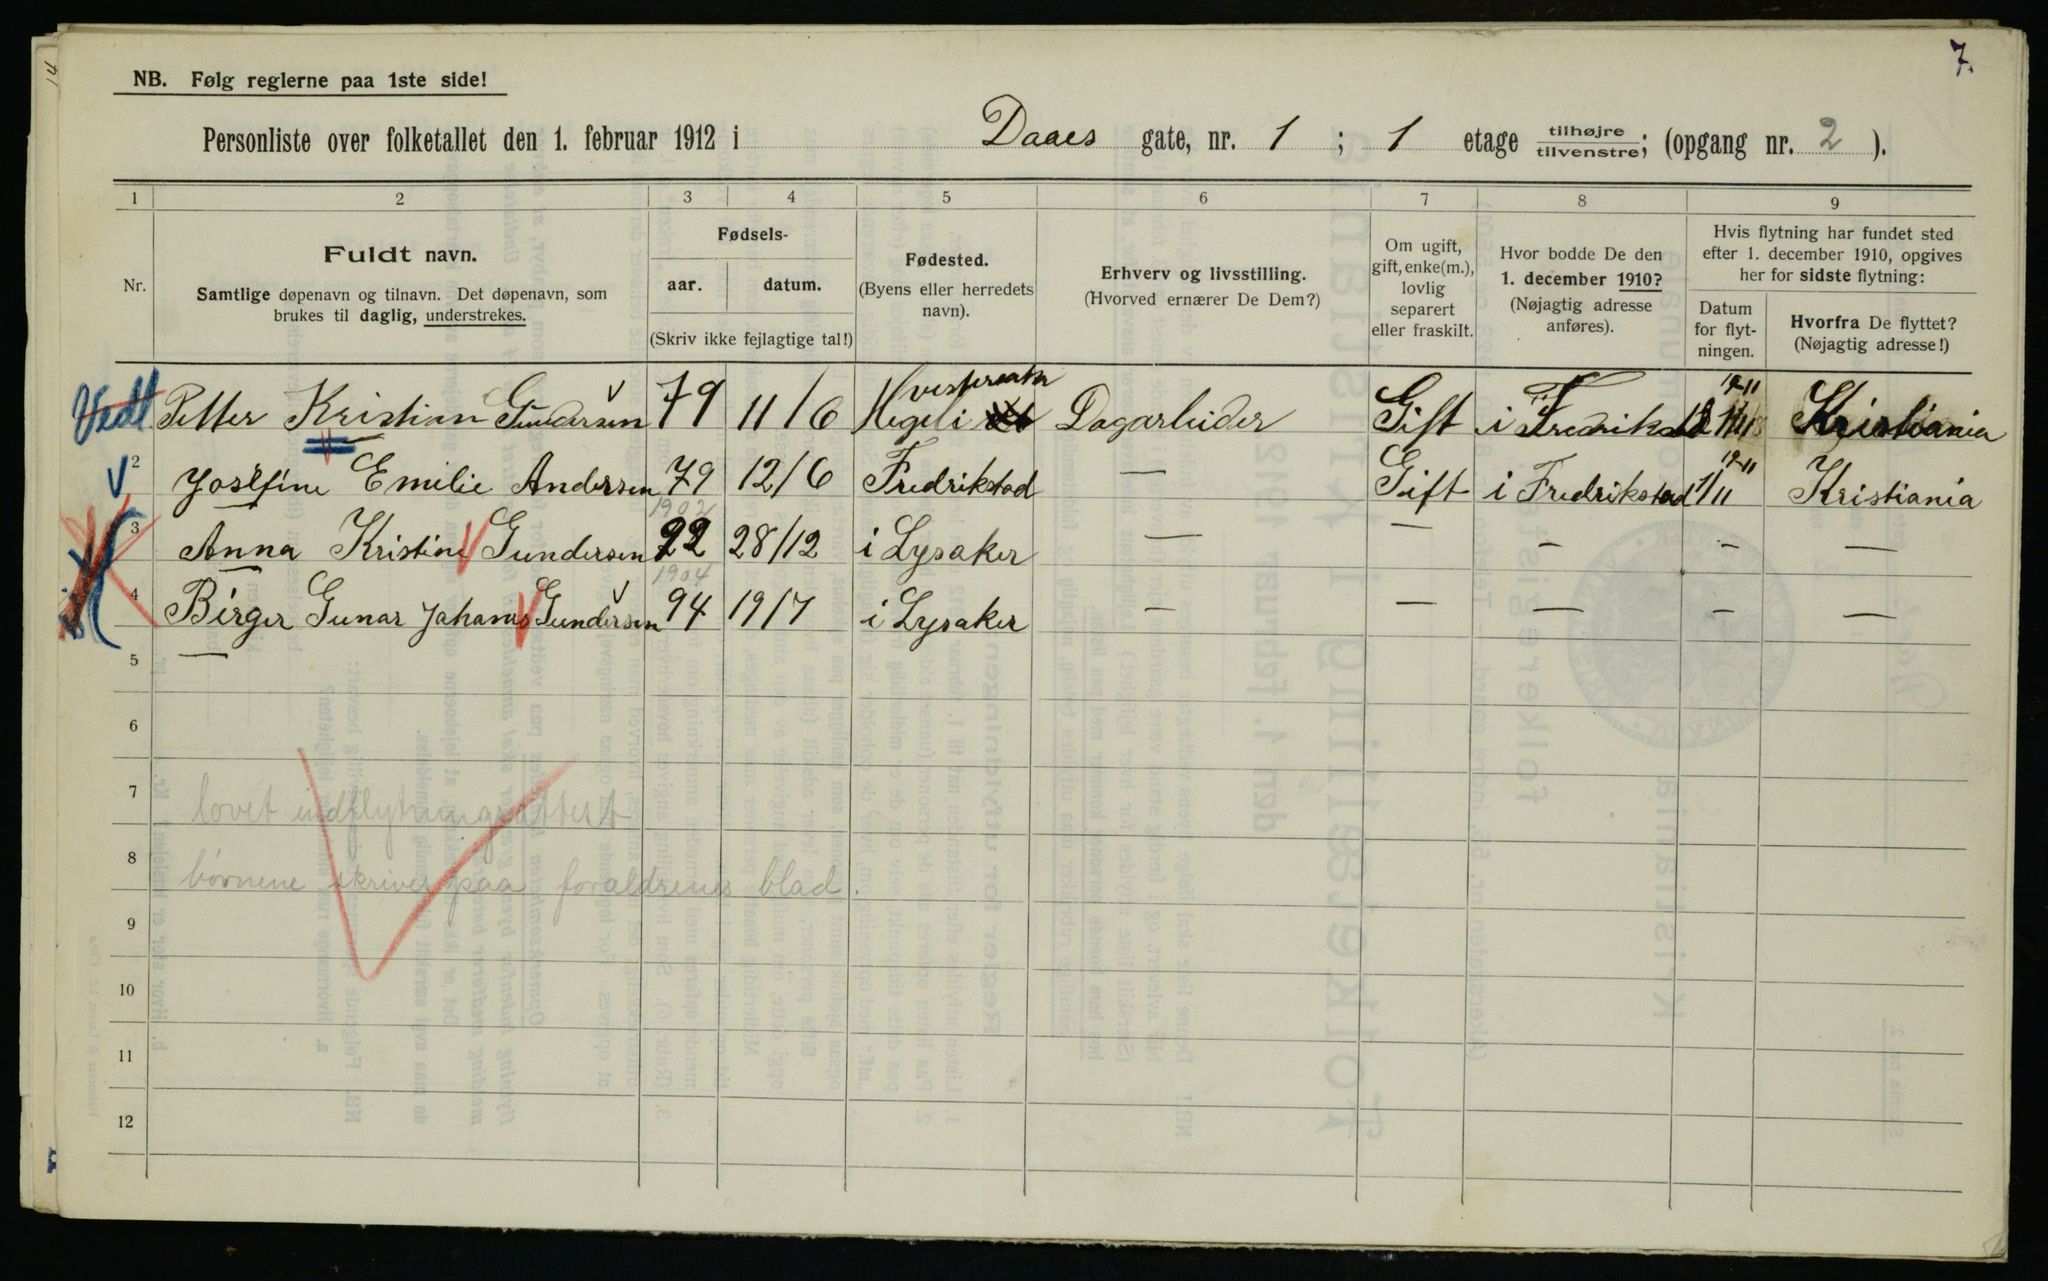 7.
NB. Følg reglerne paa 1ste side!
Personliste over folketallet den 1. februar 1912 i Daaes gate, nr. 1 ; 1 etage tilhøjre tilvenstre; (opgang nr. 2 ).
1 2 3 4 5 6 7 8 9
Nr.
Fuldt navn.
Samtlige døpenavn og tilnavn. Det døpenavn, som
brukes til daglig, understrekes.
Fødsels-
aar. datum.
(Skriv ikke fejlagtige tal!)
Fødested.
(Byens eller herredets
navn).
Erhverv og livsstilling.
(Hvorved ernærer De Dem?)
Om ugift,
gift, enke(m.),
lovlig
separert
eller fraskilt.
Hvor bodde De den
1. december 1910?
(Nøjagtig adresse
anføres).
Hvis flytning har fundet sted
efter 1. december 1910, opgives
her for sidste flytning:
Datum
for flyt-
ningen.
Hvorfra De flyttet?
(Nøjagtig adresse!)
Vedt Petter Kristian Gundersen 79 11/6 Hegeli Dagarbeider Gift i Fredrikstad Kristiania
2 Josefine Emilie Andersen 79 12/6 Fredrikstad — Gift i Fredrikstad 1/11 1911 Kristiania
1902
3 Anna Kristine Gundersen 22 28/12 i Lysaker — — — — —
1904
4 Birger Gunar Johanes Gundersen 94 19/7 i Lysaker — — — — —
5
6
7 lovet indflytningsattest
8 børnene skrives paa foraldrenes blad.
9
10
11
12